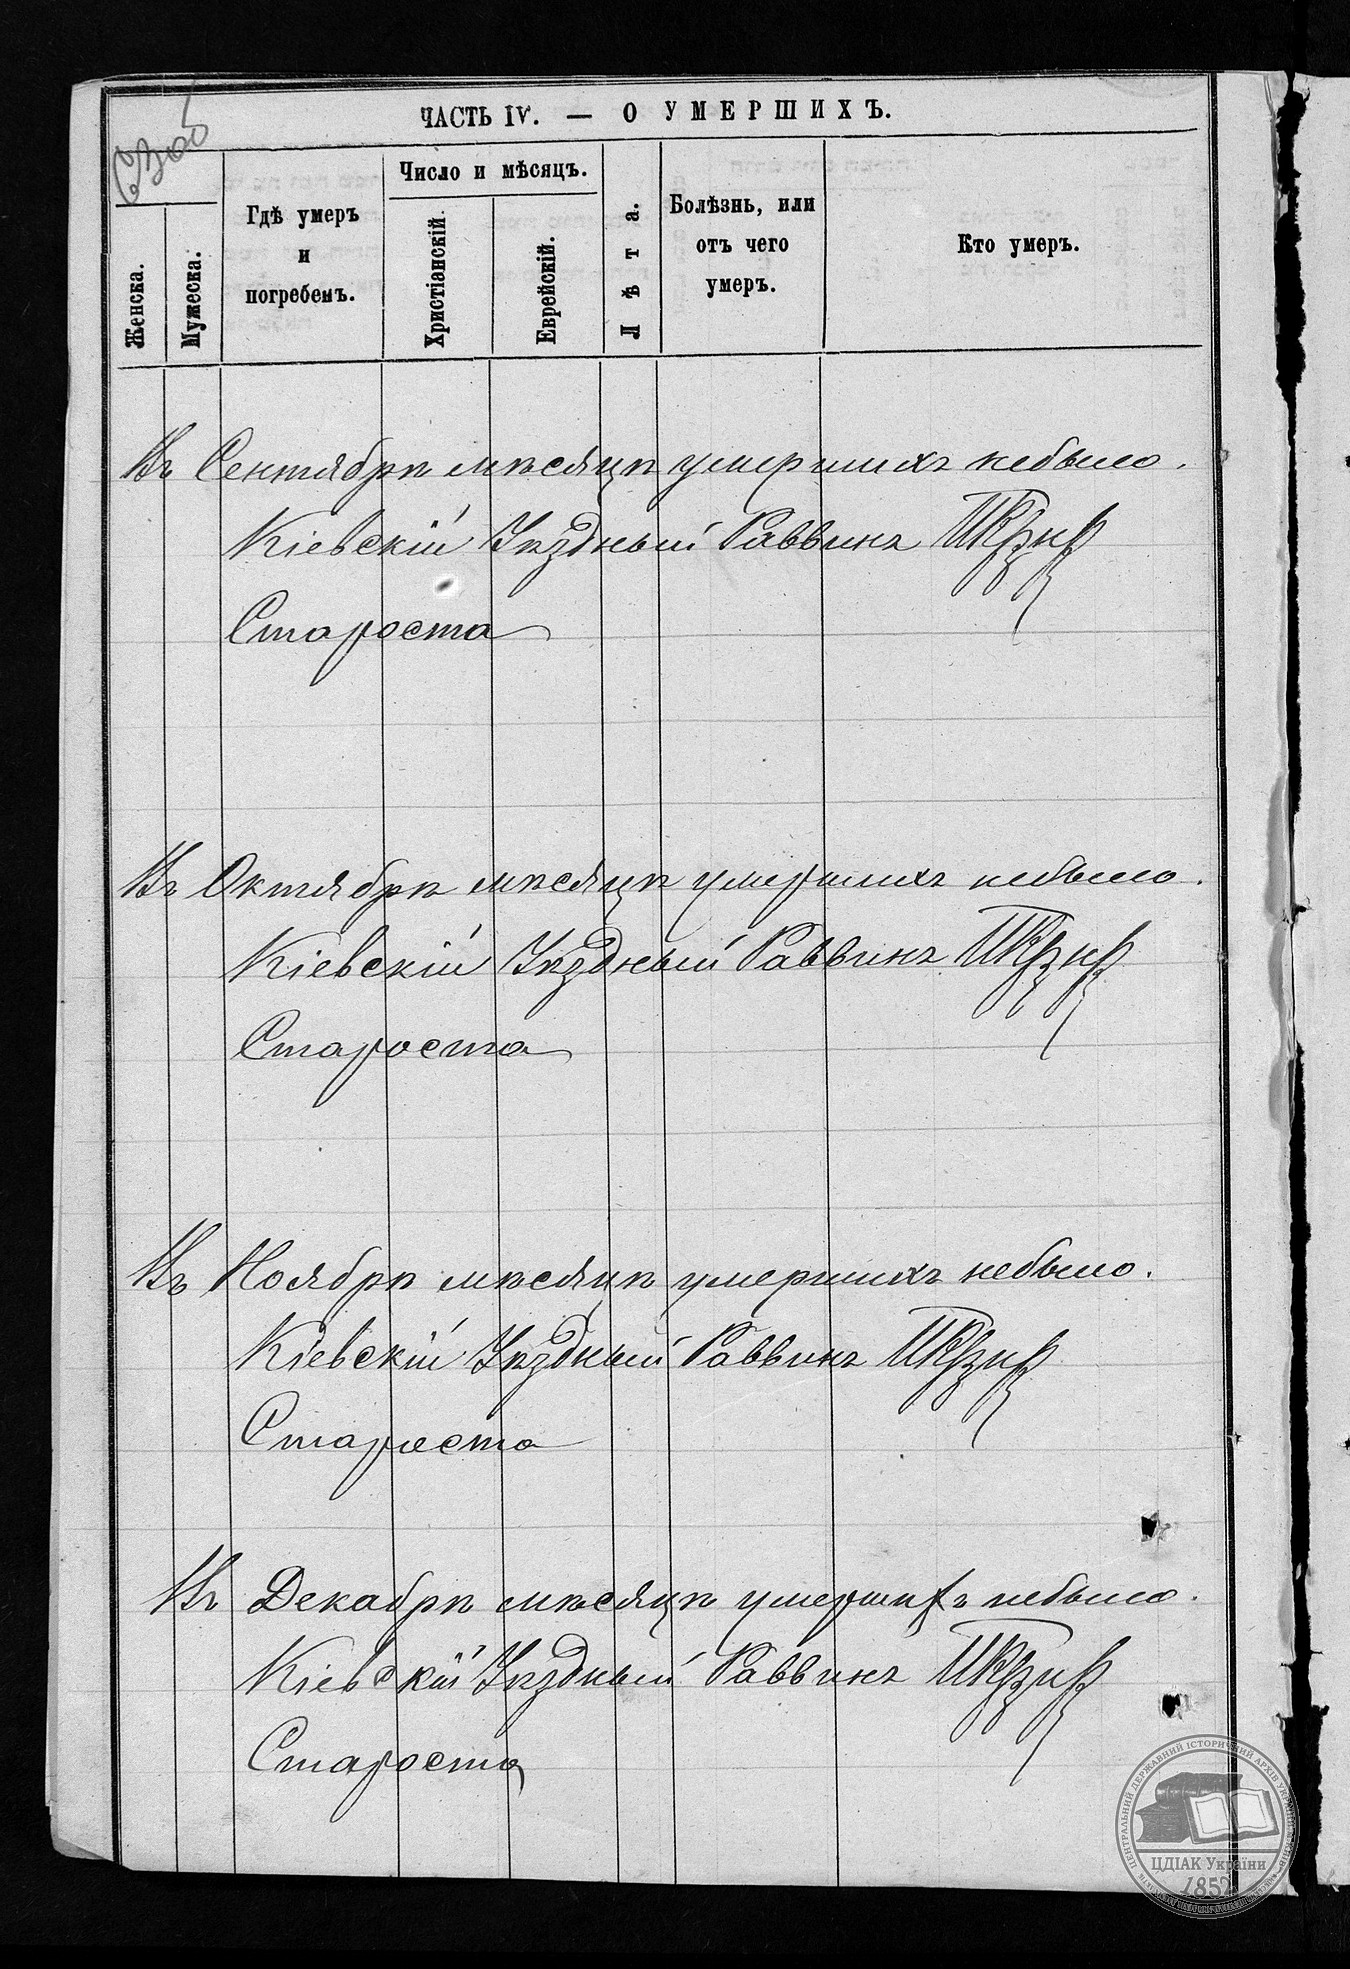 ЧАСТЬ IV. — О УМЕРШИХЪ.
Женска.
Мужеска.
Гдѣ умеръ
и
погребенъ.
Число и мѣсяцъ.
Христіанскій.
Еврейскій.
Лѣта.
Болѣзнь, или
отъ чего
умеръ.
Кто умеръ.
Въ Сентябрѣ мѣсяцѣ умершихъ небыло.
Кіевскій Уѣздный Раввинъ
Староста
Въ Октябрѣ мѣсяцѣ умершихъ небыло.
Кіевскій Уѣздный Раввинъ
Староста
Въ Ноябрѣ мѣсяцѣ умершихъ небыло.
Кіевскій Уѣздный Раввинъ
Староста
Въ Декабрѣ мѣсяцѣ умершихъ небыло.
Кіевскій Уѣздный Раввинъ
Староста
ЦЕНТРАЛЬНИЙ ДЕРЖАВНИЙ ІСТОРИЧНИЙ АРХІВ УКРАЇНИ
ЦДІАК України
1852